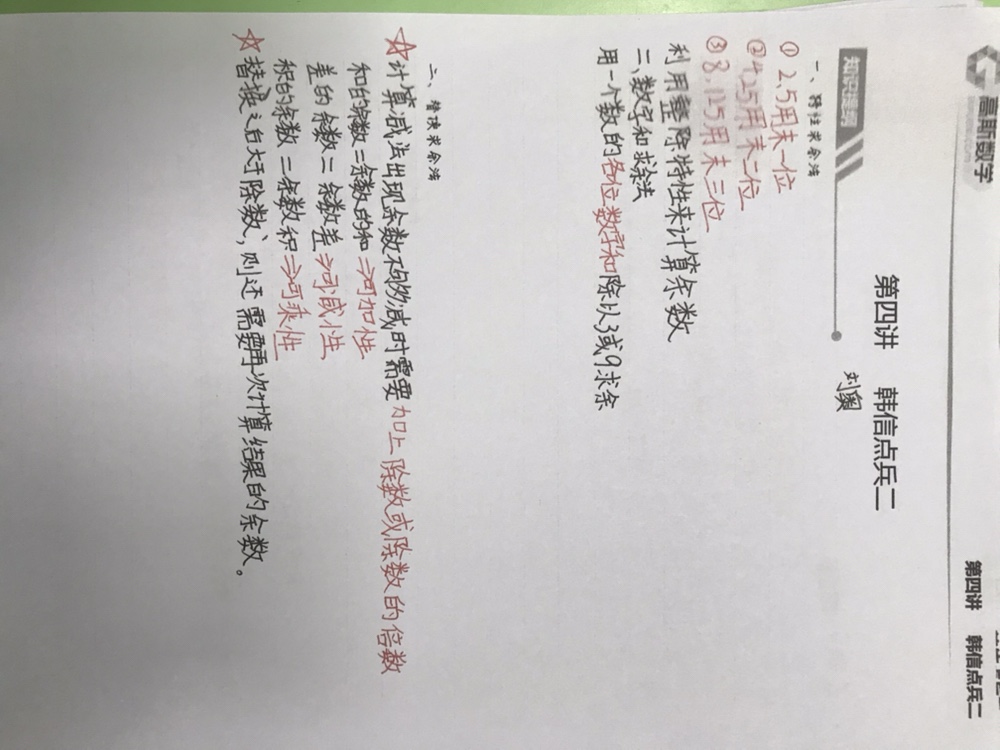 高斯数学
第四讲 韩信点兵二
第四讲 韩信点兵二
刘奥
知识精要
一、特性求余法
① 2,5用末一位
② 4,25用末二位
③ 8,125用末三位
利用整除特性来计算余数
二、数字和求余法
用一个数的各位数字和除以3或9求余
二、替换求余法
☆计算减法出现余数不够减时需要加上除数或除数的倍数
和的余数=余数的和⇒可加性
差的余数=余数差⇒可减性
积的余数=余数积⇒可乘性
☆替换之后大于除数,则还需要再次计算结果的余数。